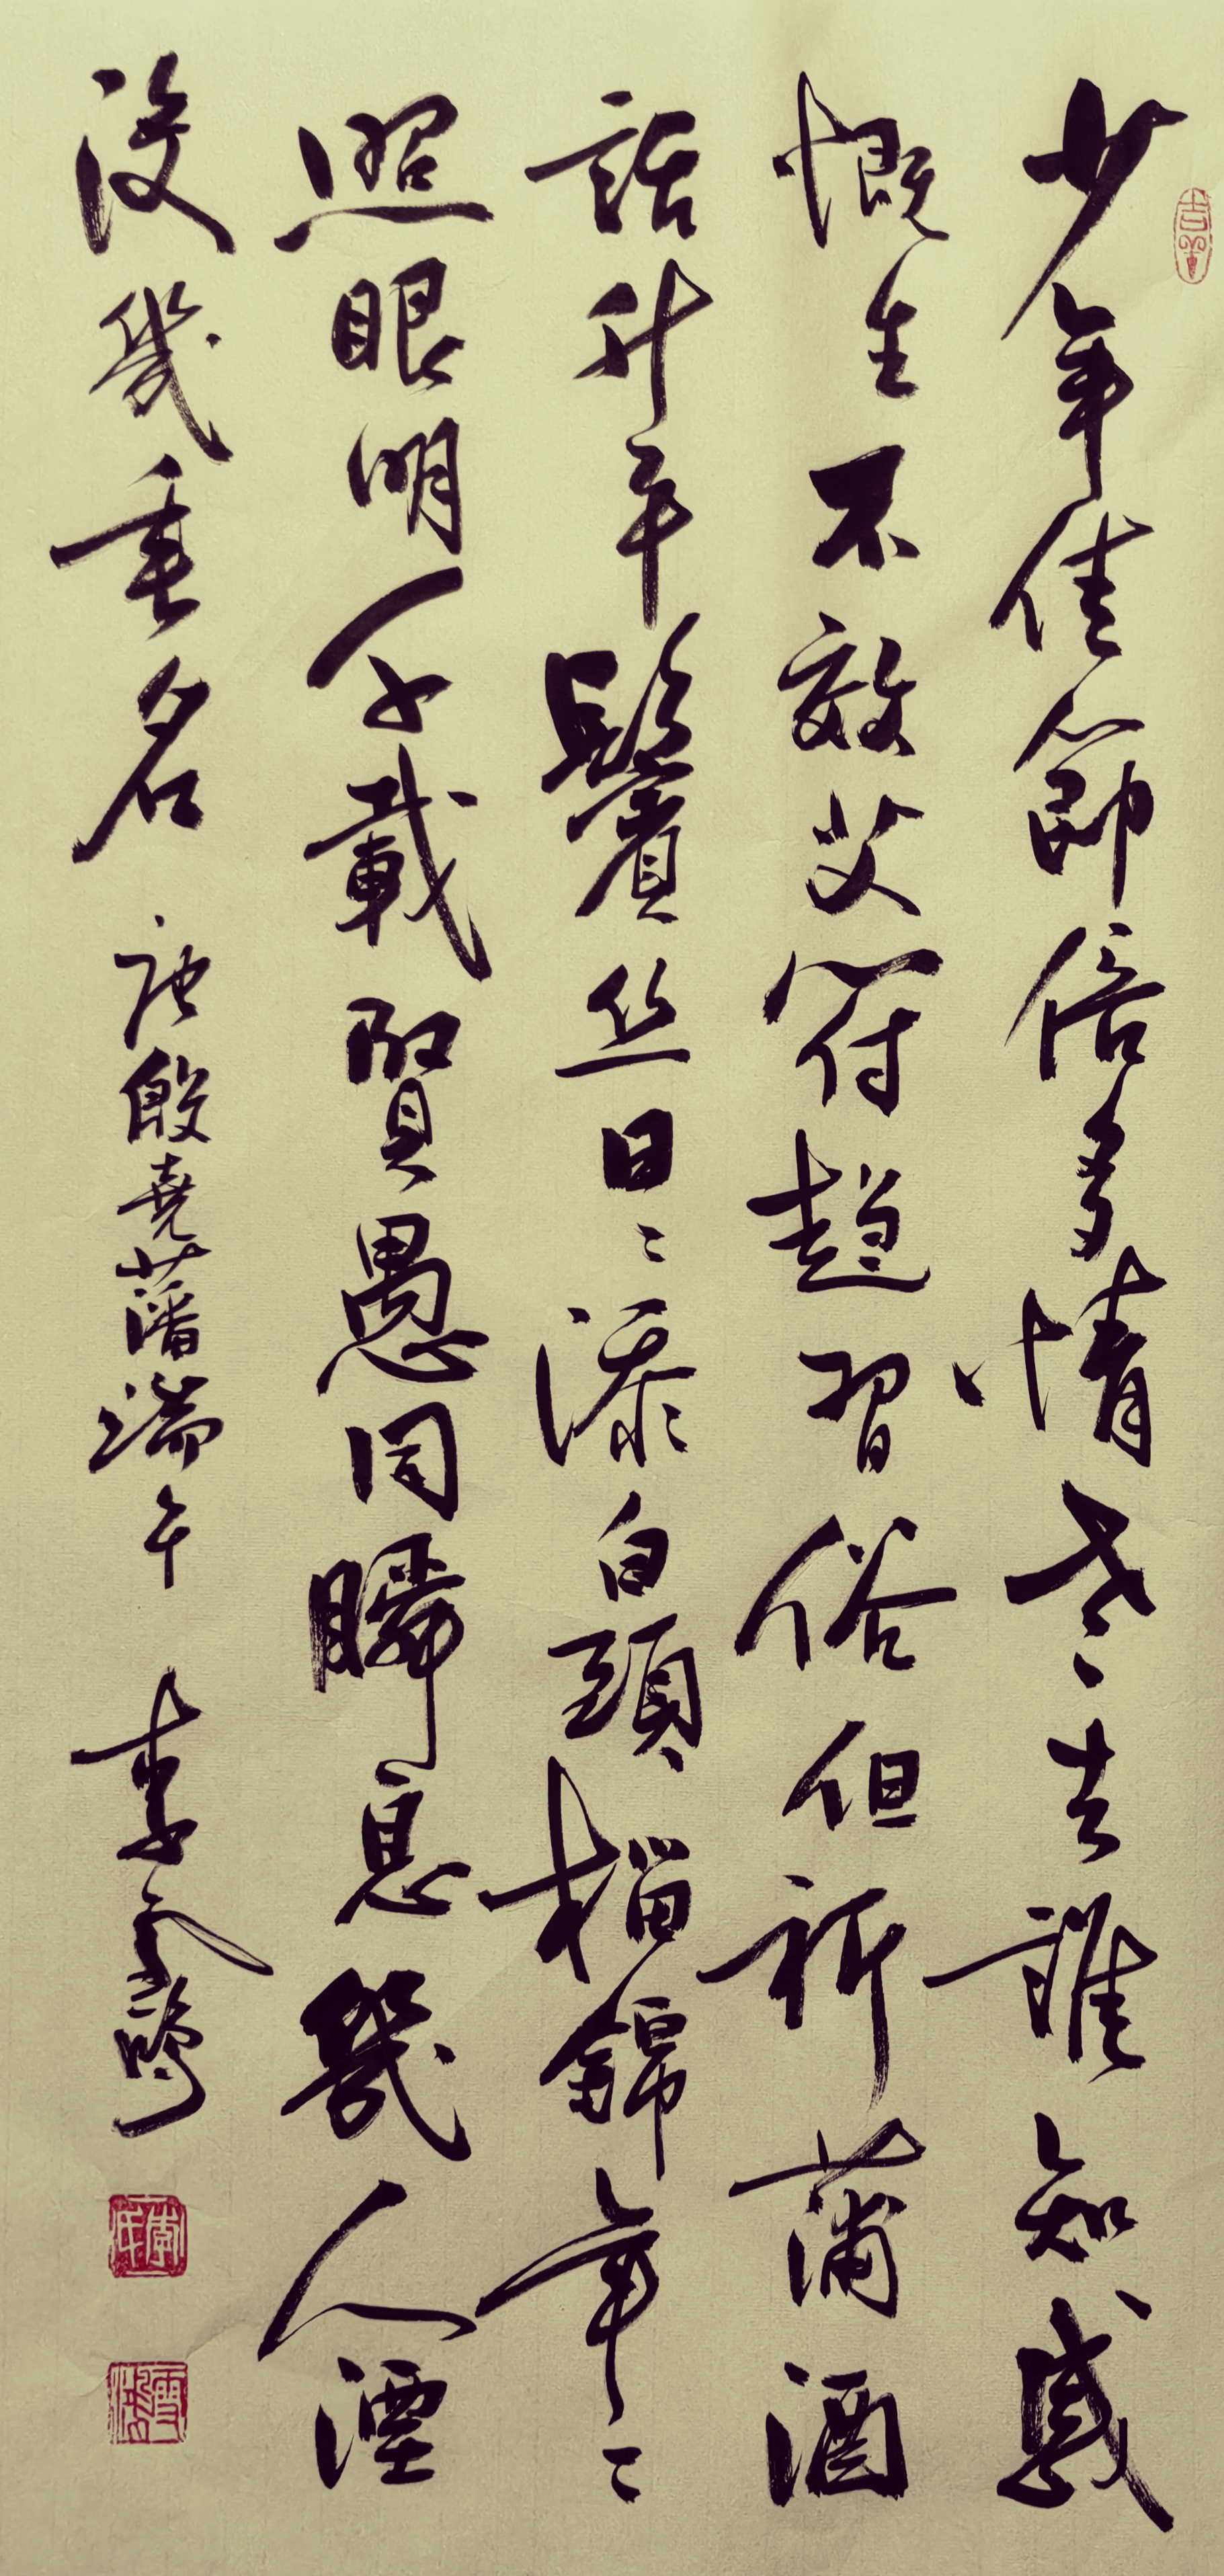 少年佳節倍多情老去誰知感
慨生不效艾符趨習俗但祈蒲酒
話升平鬢絲日〻添白頭榴錦年〻
照眼明千載賢愚同瞬息幾人湮
沒幾垂名 唐殷堯藩端午 李
吉羊
李氏